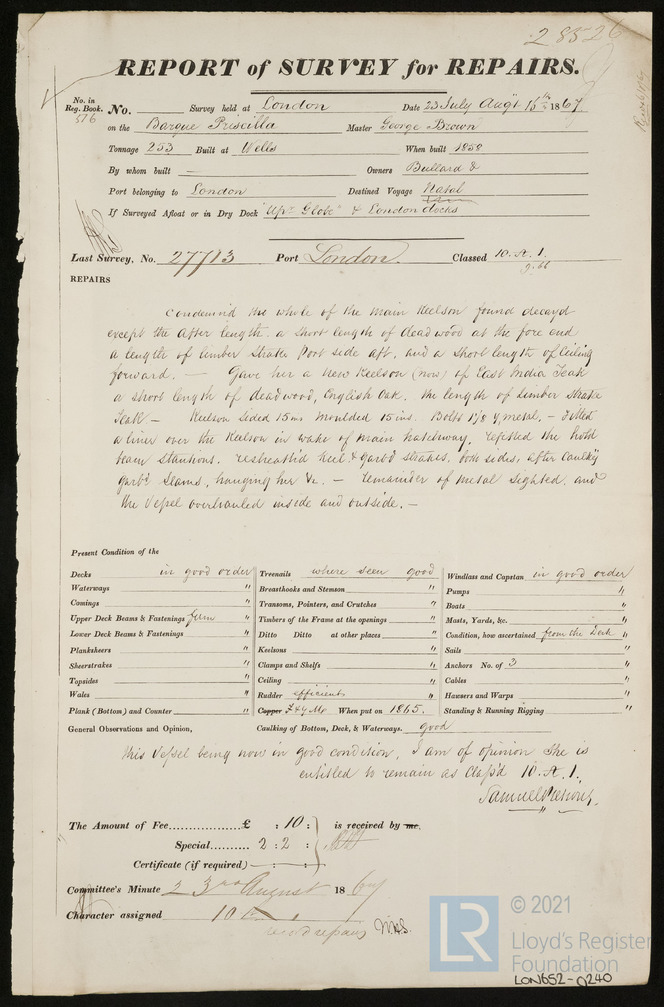 28526
REPORT of SURVEY for REPAIRS.
No. in Reg. Book. 576 No. Survey held at London Date 23 July Aug't 15th 1867
on the Barque Priscilla Master George Brown
Tonnage 253 Built at Wells When built 1858
By whom built — Owners Bullard &
Port belonging to London Destined Voyage Natal
If Surveyed Afloat or in Dry Dock "Upr Globe" & London docks
Last Survey, No. 27713 Port London. Classed 10. A. 1.
9.66
REPAIRS
Condemn'd the whole of the Main Keelson found decay'd
except the After length. a short length of deadwood at the fore end
a length of limber strake Port side aft, and a short length of Ceiling
forward. — Gave her a New Keelson (now) of East India Teak
a short length of deadwood, English Oak. the length of Limber Strake
Teak. — Keelson Sided 15 ins Moulded 15 ins. Bolts 1 1/8 Y metal. — Fitted
a liner over the Keelson in wake of Main hatchway, refitted the hold
beam Stantions. resheath'd keel & Garb'd strakes, both sides, after Caulk'g
Garb'd Seams, hanging her &c. — remainder of Metal Sighted, and
the Vessel overhauled inside and outside. —
Present Condition of the
Decks in good order
Waterways "
Comings "
Upper Deck Beams & Fastenings firm "
Lower Deck Beams & Fastenings "
Planksheers "
Sheerstrakes "
Topsides "
Wales "
Plank (Bottom) and Counter "
Treenails where seen good
Breasthooks and Stemson "
Transoms, Pointers, and Crutches "
Timbers of the Frame at the openings "
Ditto Ditto at other places "
Keelsons "
Clamps and Shelfs "
Ceiling "
Rudder efficient "
Copper F & Y M When put on 1865.
Windlass and Capstan in good order
Pumps "
Boats "
Masts, Yards, &c. "
Condition, how ascertained from the Deck "
Sails "
Anchors No. of 3 "
Cables "
Hawsers and Warps "
Standing & Running Rigging "
General Observations and Opinion, Caulking of Bottom, Deck, & Waterways. good
This Vessel being now in good condition, I am of opinion She is
entitled to remain as Class'd 10. A. 1.
Samuel
The Amount of Fee £ : 10 : is received by me.
Special 2 : 2 :
Certificate (if required) — : — :
Committee's Minute 23rd August 1867
Character assigned 10 A 1
record repairs
© 2021
LR Lloyd's Register
Foundation
LON652-0240